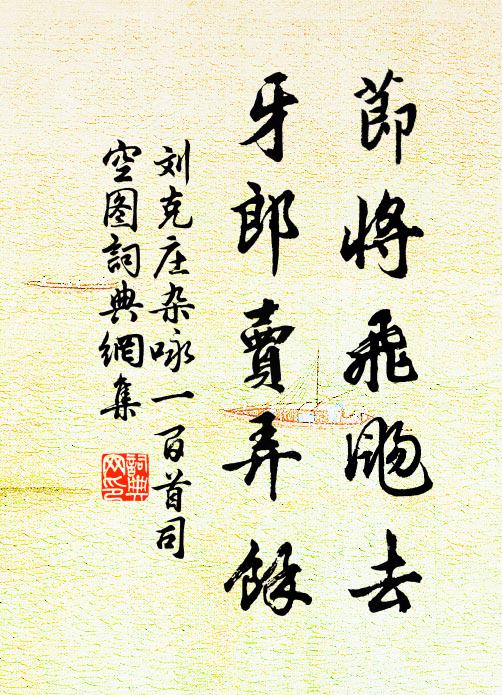 節將飛颺去
牙郎賣弄餘
刘克庄杂咏一百首司
空图詞典網集
詞典
网印